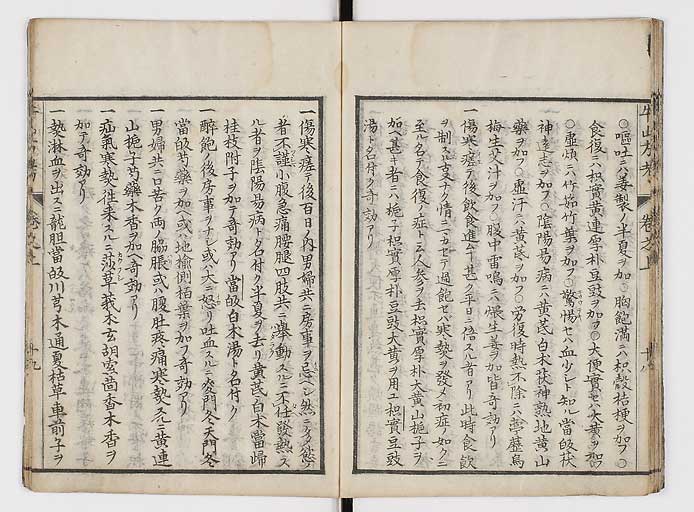 ○嘔吐ニハ姜製ノ半夏ヲ加○胸飽満ニハ枳殻桔梗ヲ加フ○
食復ニハ枳實黄連厚朴豆豉ヲ加フ○大便實セハ大黄ヲ加
○虚煩ニハ竹茹竹葉ヲ加フ○驚惕セハ血少シト知ル當皈茯
神遠志ヲ加フ○陰陽易病ニハ黄芪白朮茯神熟地黄山
藥ヲ加フ○虚汗ニハ黄芪ヲ加フ○労復時熱不除ニハ葶藶烏
梅生艾汁ヲ加フ○腹中雷鳴ニハ煨生姜ヲ加皆奇効アリ
一傷寒瘥テ後飲食進ム了甚ク平日ニ倍スル者アリ此時食飲
ヲ制スル了ナク情ニマカセテ過飽セハ寒熱ヲ發メ初症ノ如クニ
至ル名テ食復ノ症ト云人参ヲ去枳實厚朴大黄山梔子ヲ
加ヘ甚キ者ニハ梔子枳實厚朴豆豉大黄ヲ用ユ枳實豆豉
湯ト名付ク奇効アリ
一傷寒瘥テ後百日ノ内男婦共ニ房事ヲ忌ヘシ然ニ
者不謹小腹急痛腰腿四肢共ニ舉動スルニ不任發熱ス
ル者ヲ陰陽易病ト名付ク半夏ヲ去リ黄芪白朮當歸
桂枝附子ヲ加テ奇効アリ當皈白朮湯ト名付ク
一醉飽ノ後房事ヲナシ或ハ大ニ怒リ吐血スルニ麥門冬天門冬
當皈芍藥ヲ加ヘ或ハ地榆側栢葉ヲ加フ奇効アリ
一男婦共ニ口苦ク両ノ脇脹或ハ腹肚疼痛寒熱スルニ黄連
山梔子芍藥木香ヲ加ヘ奇効アリ
一疝氣寒熱往来スルニ莎草莪朮玄胡索茴香木香ヲ
加テ奇効アリ
一熱淋血ヲ出スニ龍胆當皈川芎木通夏枯草車前子ヲ